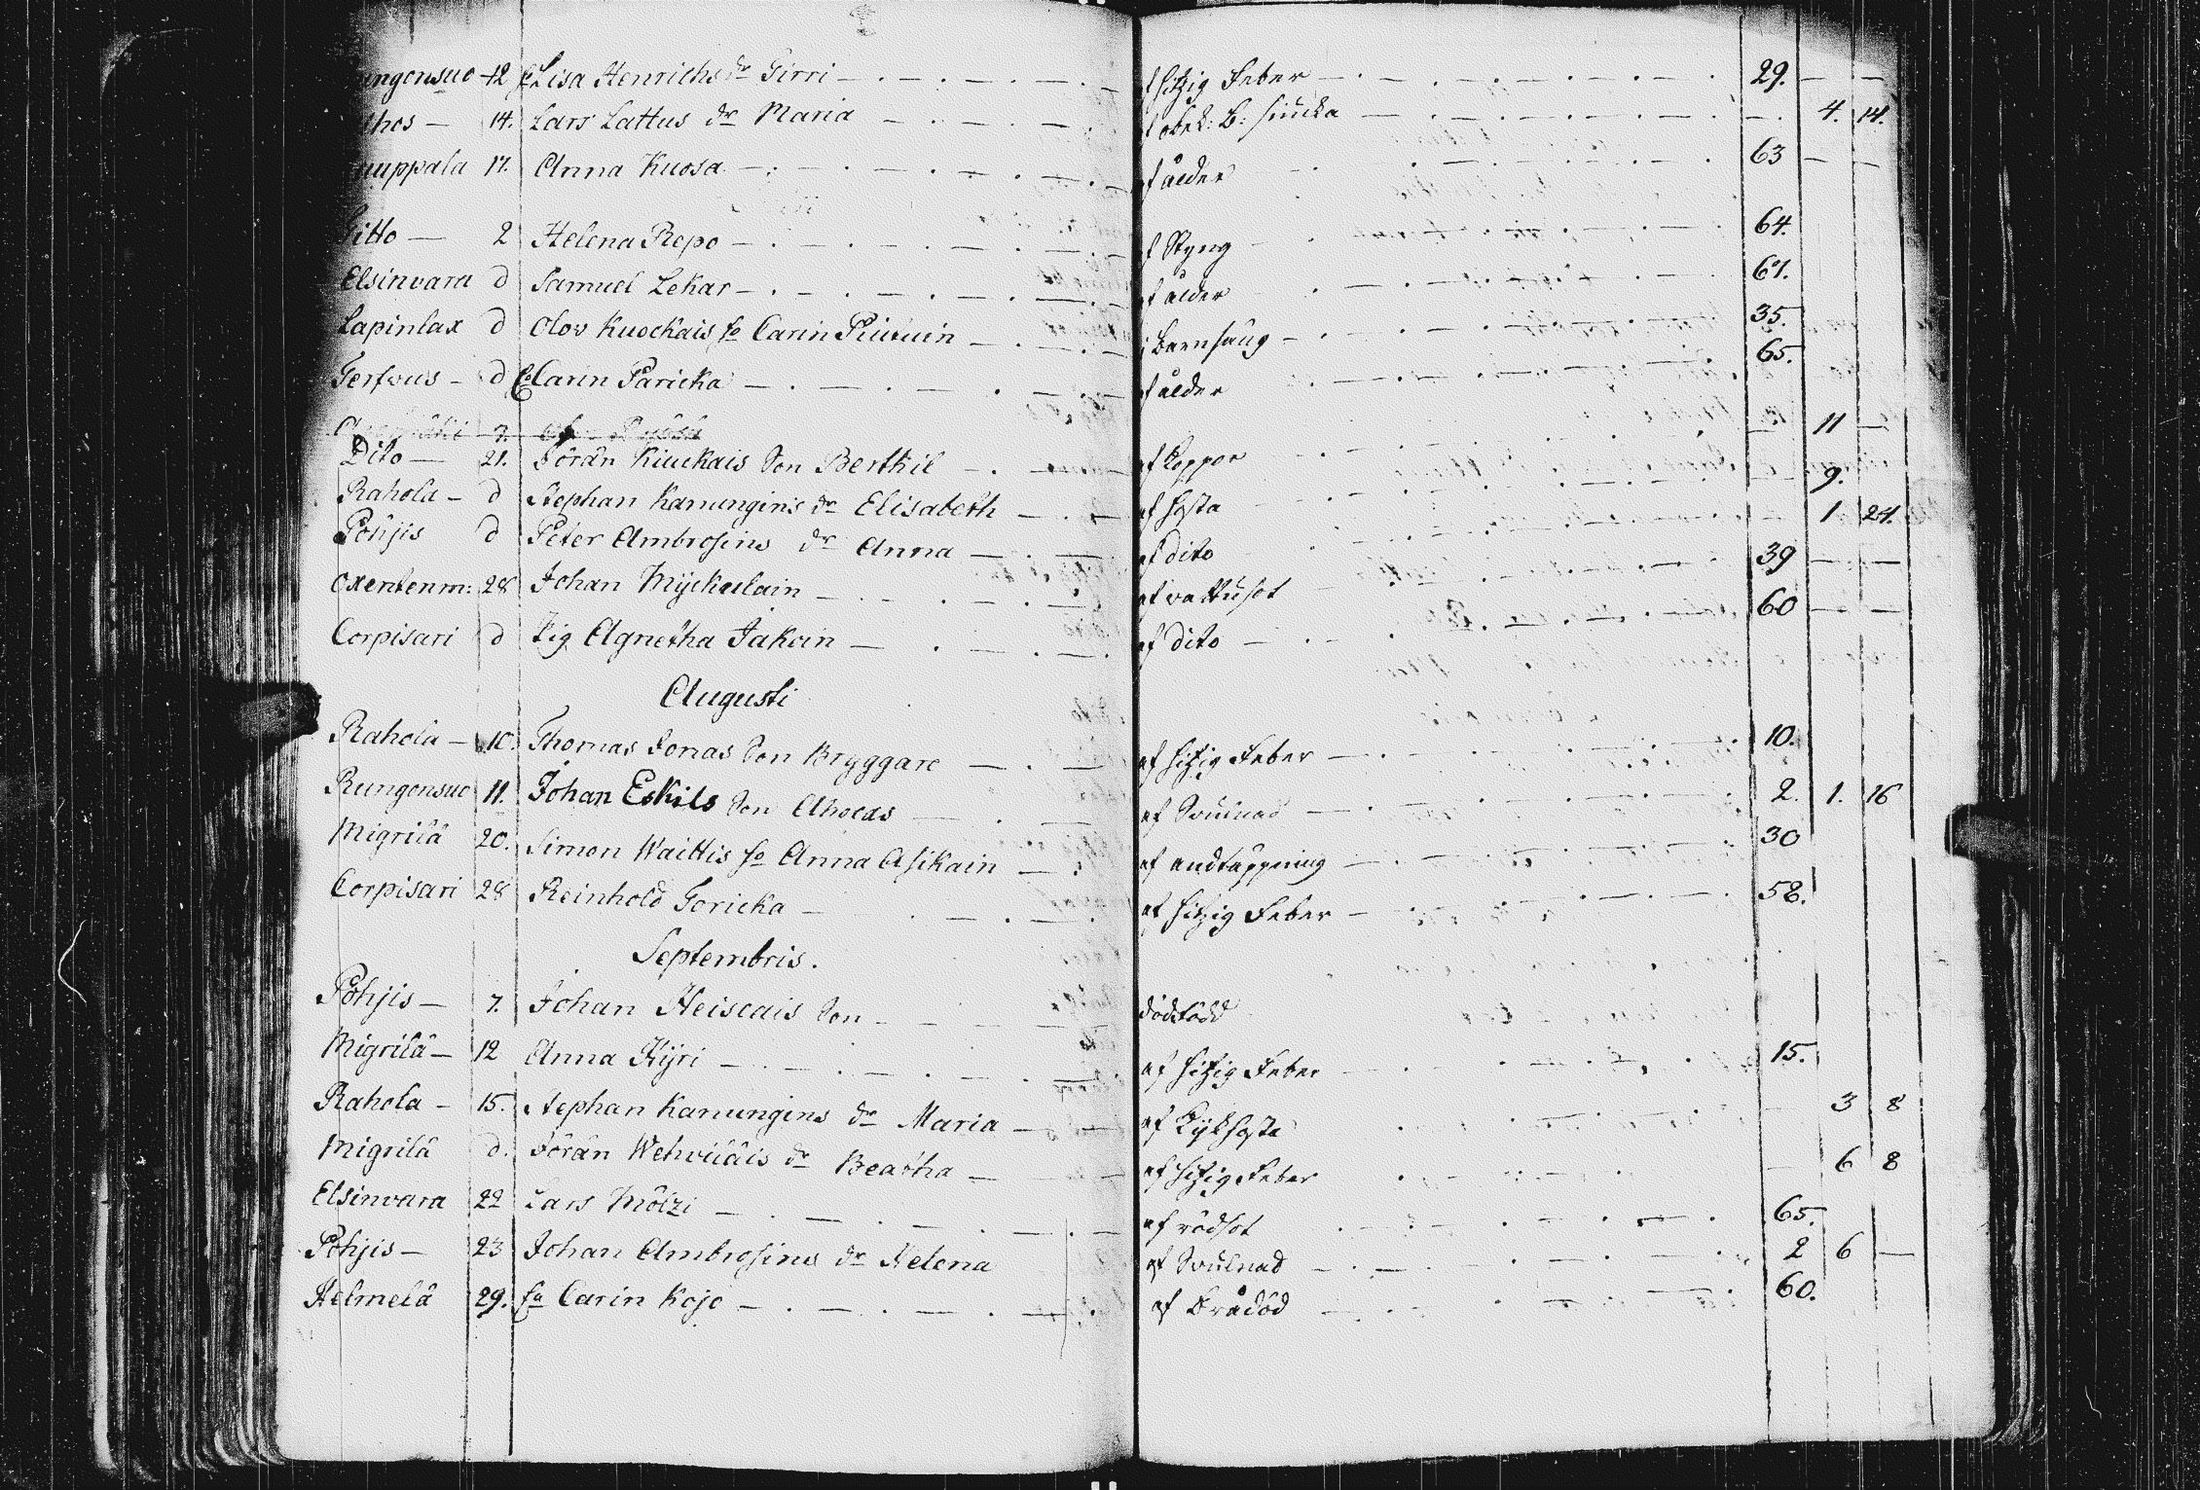 ungonsuo 12 Lisa Henrichs dr Girri af hitzig Feber 29.
thos 14. Lars Lattus dr Maria af obek: B: siucka 4. 14.
uppala 17. Anna Kuosa af ålder 63
Ditto 2 Helena Repo af Styng 64
Elsinvara d Samuel Lekar af ålder 67.
Lapinlax d Olov Kuockais ho Carin i Barnsäng 35.
d Carin Paricka af ålder 65.
Dito 21. Jörän Kiuckais Son Berthil af koppor 11
Rahola d Stephan Kanungins dr Elisabeth af hosta 9.
Pohjis d Peter Ambrosius dr Anna af dito 1 24.
Oxentenm: 28 Johan Myckulain af vattusot 39
Corpisari d Pig Agnetha Jakoin af dito 60
Augusti
Rahola 10. Thomas Jonas Son Bryggare af hitzig Feber 10.
Rungonsuo 11. Johan Eskils Son Ahocas af Svulnad 2. 1. 16
Migrilä 20. Simon Waittis ho Anna Asikain af andtäppning 30
Corpisari 28 Reinhold Toricka af hitzig Feber 58.
Septembris.
Pohjis 7. Johan Heiscais Son dödfödd
Migrilä 12 Anna Kyri af hitzig Feber 15.
Rahola 15. Stephan Kanungins dr Maria af Kikhosta 3 8
Migrilä d. Jörän Wehviläis dr Beatha af hitzig Feber 6 8
Elsinvara 22 Lars Mölzi af rödsot 65.
Pohjis 23 Johan Ambrosius dr Helena af Svulnad 2 6
Helmelä 29. Ea Carin Kojo af Brådöd 60.